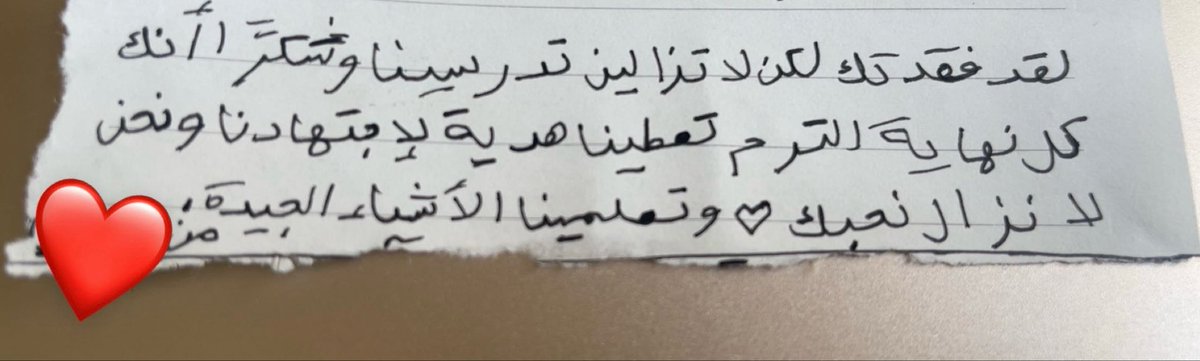 لقد فقدتك لكن لا تزالين تدرسينا وشكرًا أنك
كل نهاية الترم تعطينا هدية لإجتهادنا ونحن
لا نزال نحبك ♡ وتعلمينا الأشياء الجيدة